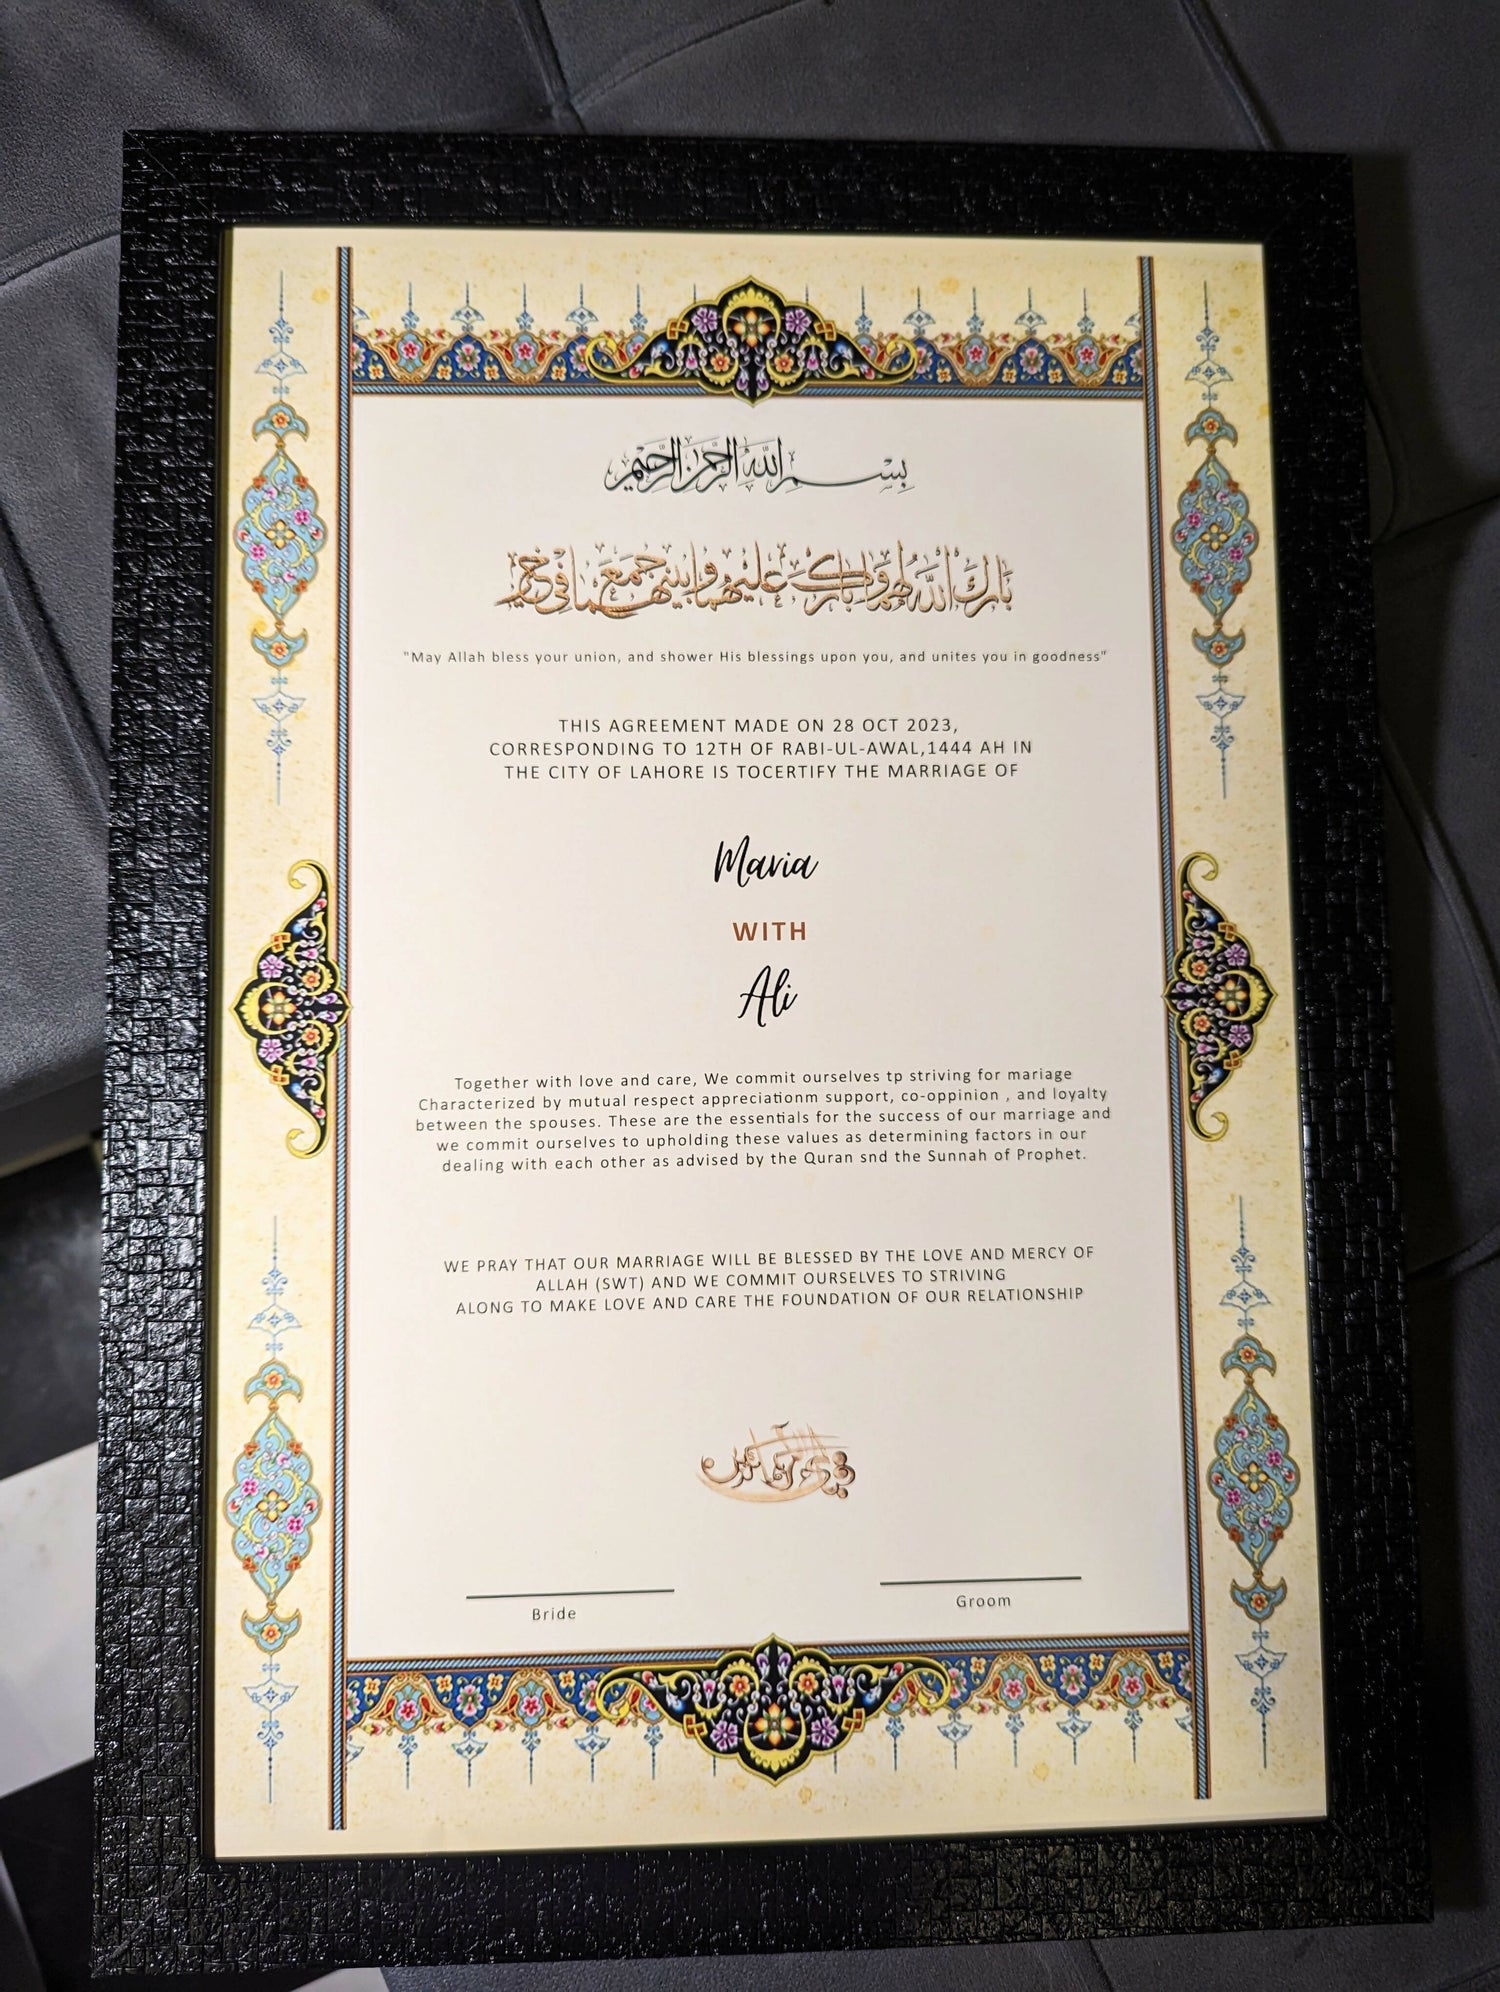 بسم الله الرحمن الرحيم
بارك الله لهما وبارك عليهما وجمع بينهما في خير
"May Allah bless your union, and shower His blessings upon you, and unites you in goodness"
THIS AGREEMENT MADE ON 28 OCT 2023,
CORRESPONDING TO 12TH OF RABI-UL-AWAL,1444 AH IN
THE CITY OF LAHORE IS TOCERTIFY THE MARRIAGE OF
Maria
WITH
Ali
Together with love and care, We commit ourselves tp striving for mariage
Characterized by mutual respect appreciationm support, co-oppinion , and loyalty
between the spouses. These are the essentials for the success of our marriage and
we commit ourselves to upholding these values as determining factors in our
dealing with each other as advised by the Quran snd the Sunnah of Prophet.
WE PRAY THAT OUR MARRIAGE WILL BE BLESSED BY THE LOVE AND MERCY OF
ALLAH (SWT) AND WE COMMIT OURSELVES TO STRIVING
ALONG TO MAKE LOVE AND CARE THE FOUNDATION OF OUR RELATIONSHIP
Bride
Groom